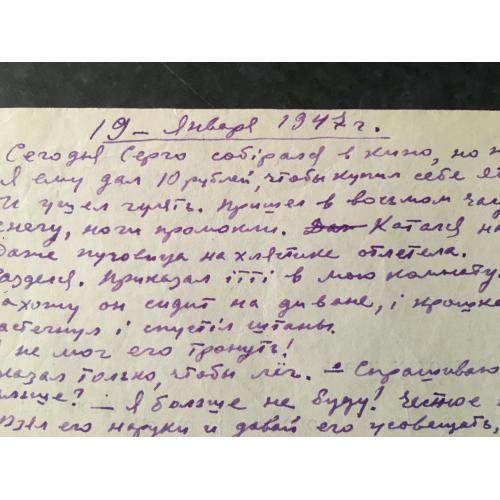 19 – Января 1947 г.
Сегодня Серго собірался в кино, но н
Я ему дал 10 рублей, чтобы купил себе
И ушел гулять. Пришел в восьмом час
снегу, ноги промокли. Катался на
Даже пуговица на хлястике отлетела.
Разделся. Приказал ітті в мою комнату.
ахожу он сидит на диване, і
астегнул і спустіл штаны.
не мог его тронуть!
казал только, чтобы лёг. – Спрашиваю
– Я больше не буду! Честное
взял его наруки и давай его усовещать,